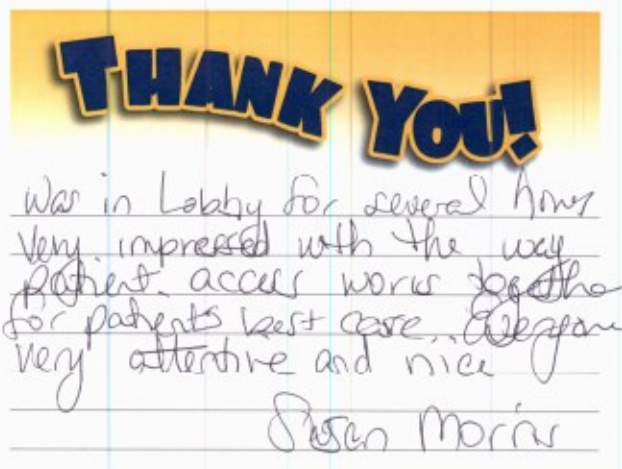 THANK YOU!
Was in Lobby for several hours
Very impressed with the way
patient access works together
for patients best care. Everyone
very attentive and nice
Susan Morris